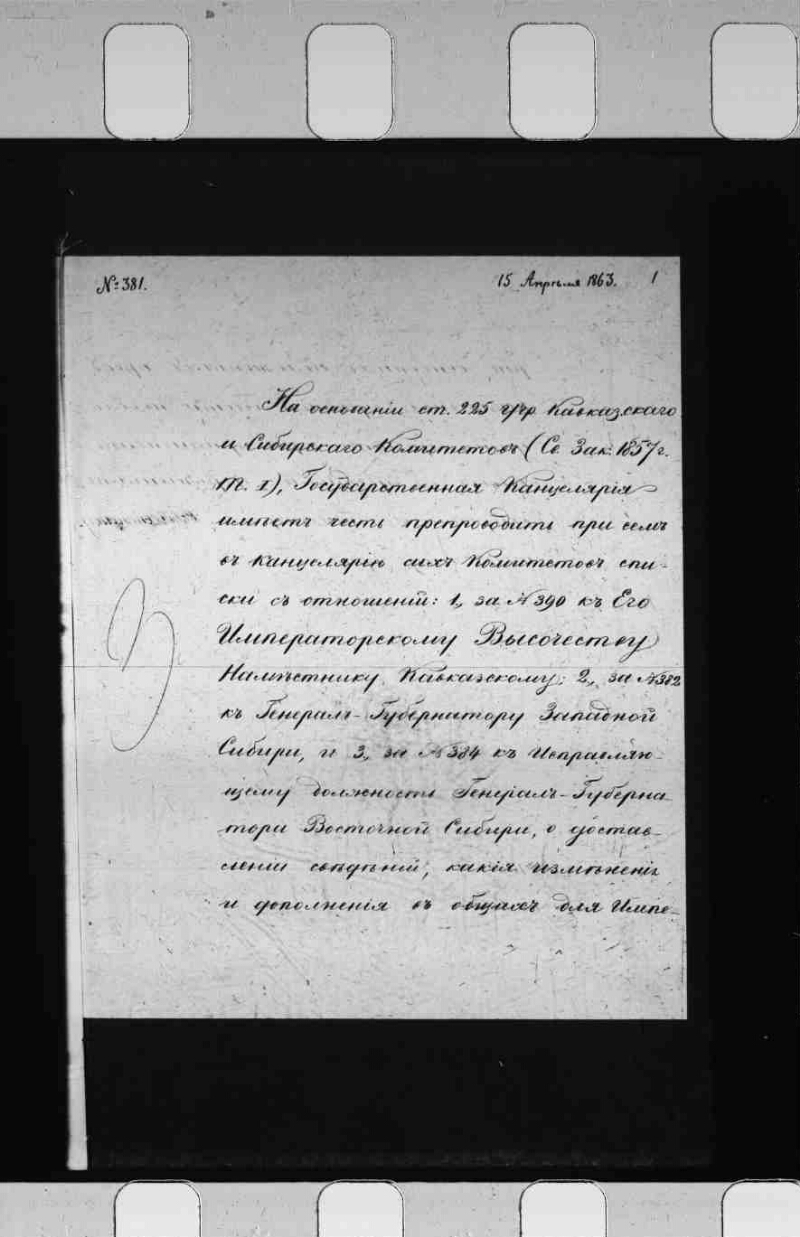 № 381.
15 Апрѣля 1863. 1
На основаніи ст. 225 Учр. Кавказскаго
и Сибирскаго Комитетовъ (Св. Зак. 1857 г.
т. I), Государственная Канцелярія
имѣетъ честь препроводить при семъ
въ Канцелярію сихъ Комитетовъ спи-
ски съ отношеній: 1., за № 390 къ Его
Императорскому Высочеству
Намѣстнику Кавказскому; 2., за № 382
къ Генералъ-Губернатору Западной
Сибири, и 3., за № 384 къ Исправляю-
щему должность Генералъ-Губерна-
тора Восточной Сибири, о достав-
леніи свѣдѣній, какія измѣненія
и дополненія въ общихъ для Импе-